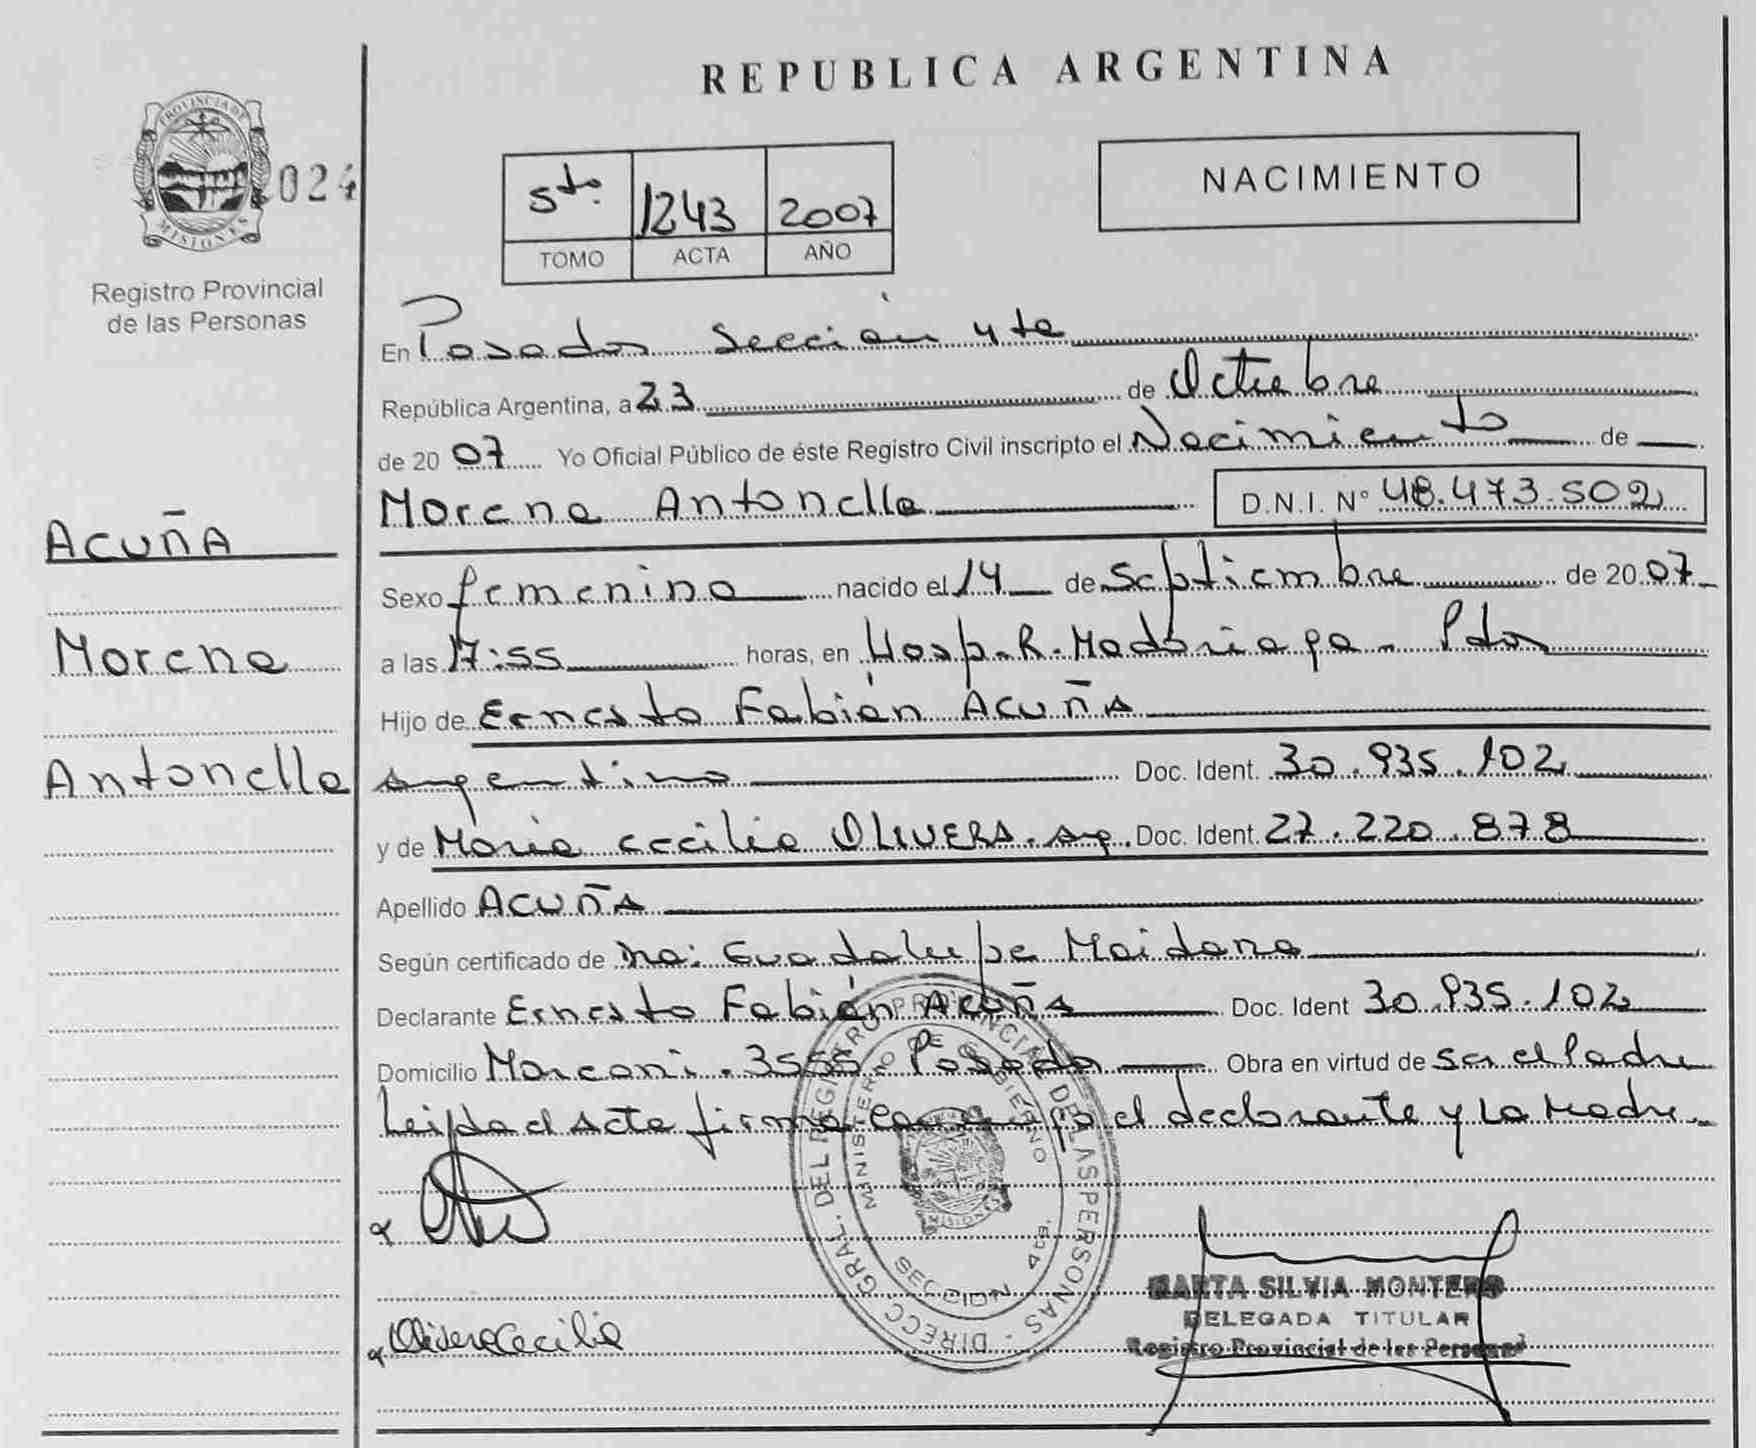 REPUBLICA ARGENTINA
PROVINCIA DE
MISIONES
024
Registro Provincial
de las Personas
5to. 1243 2007
TOMO ACTA AÑO
NACIMIENTO
En Posadas Sección 4ta
República Argentina, a 23 de Octubre
de 2007 Yo Oficial Público de éste Registro Civil inscripto el Nacimiento de
Morena Antonella D.N.I. Nº 48.473.502
ACUÑA
Morena
Antonella
Sexo femenino nacido el 14 de Septiembre de 2007
a las 17:55 horas, en Hosp. R. Madariaga - Pdas
Hijo de Ernesto Fabián ACUÑA
argentino Doc. Ident. 30.935.102
y de María Cecilia OLIVERA. arg. Doc. Ident. 27.220.878
Apellido ACUÑA
Según certificado de Dra: Guadalupe Maidana
Declarante Ernesto Fabián ACUÑA Doc. Ident 30.935.102
Domicilio Marconi. 3555. Posadas Obra en virtud de ser el Padre
Leída el Acta firma conmigo el declarante y la Madre.
DIRECC. GRAL. DEL REGISTRO PROVINCIAL DE LAS PERSONAS
MINISTERIO DE GOBIERNO
MISIONES
SECCION 4ta.
Olivera Cecilia
MARTA SILVIA MONTERO
DELEGADA TITULAR
Registro Provincial de las Personas